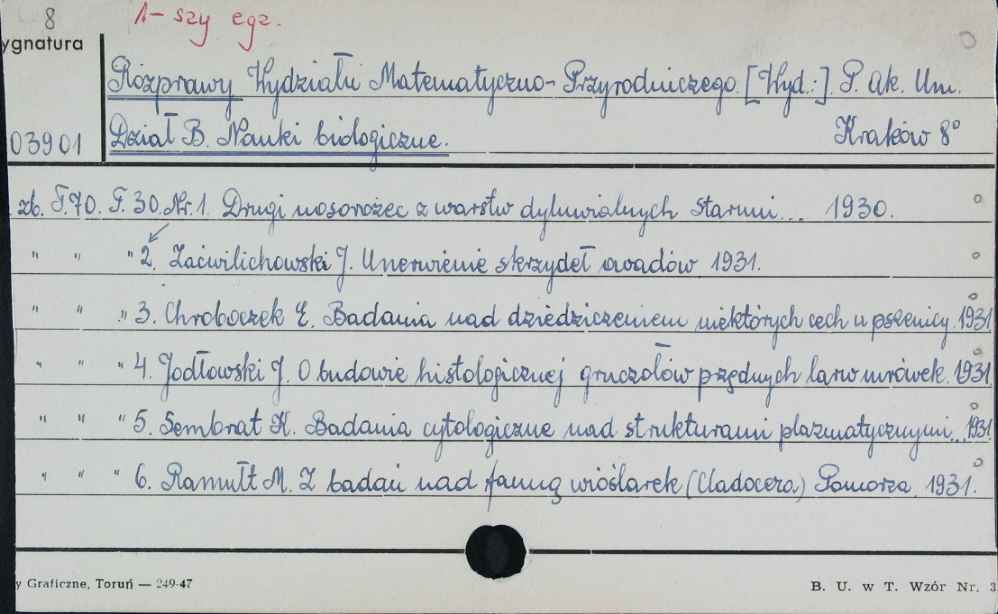 8 1-szy egz.
ygnatura
Rozprawy Wydziału Matematyczno-Przyrodniczego. [Wyd.:] P. Ak. Um.
03901 Dział B. Nauki biologiczne. Kraków 8°
zb. T.70. F. 30. Nr. 1. Drugi nosorożec z warstw dyluwialnych Staruni... 1930.
" " " 2. Zaćwilichowski J. Unerwienie skrzydeł owadów 1931.
" " " 3. Chroboczek E. Badania nad dziedziczeniem niektórych cech u pszenicy. 1931
" " " 4. Jodłowski J. O budowie histologicznej gruczołów przędnych larw mrówek. 1931
" " " 5. Sembrat K. Badania cytologiczne nad strukturami plazmatycznymi... 1931
" " " 6. Ramułt M. Z badań nad fauną wioślarek (Cladocera) Pomorza. 1931.
y Graficzne, Toruń — 249-47 B. U. w T. Wzór Nr. 3